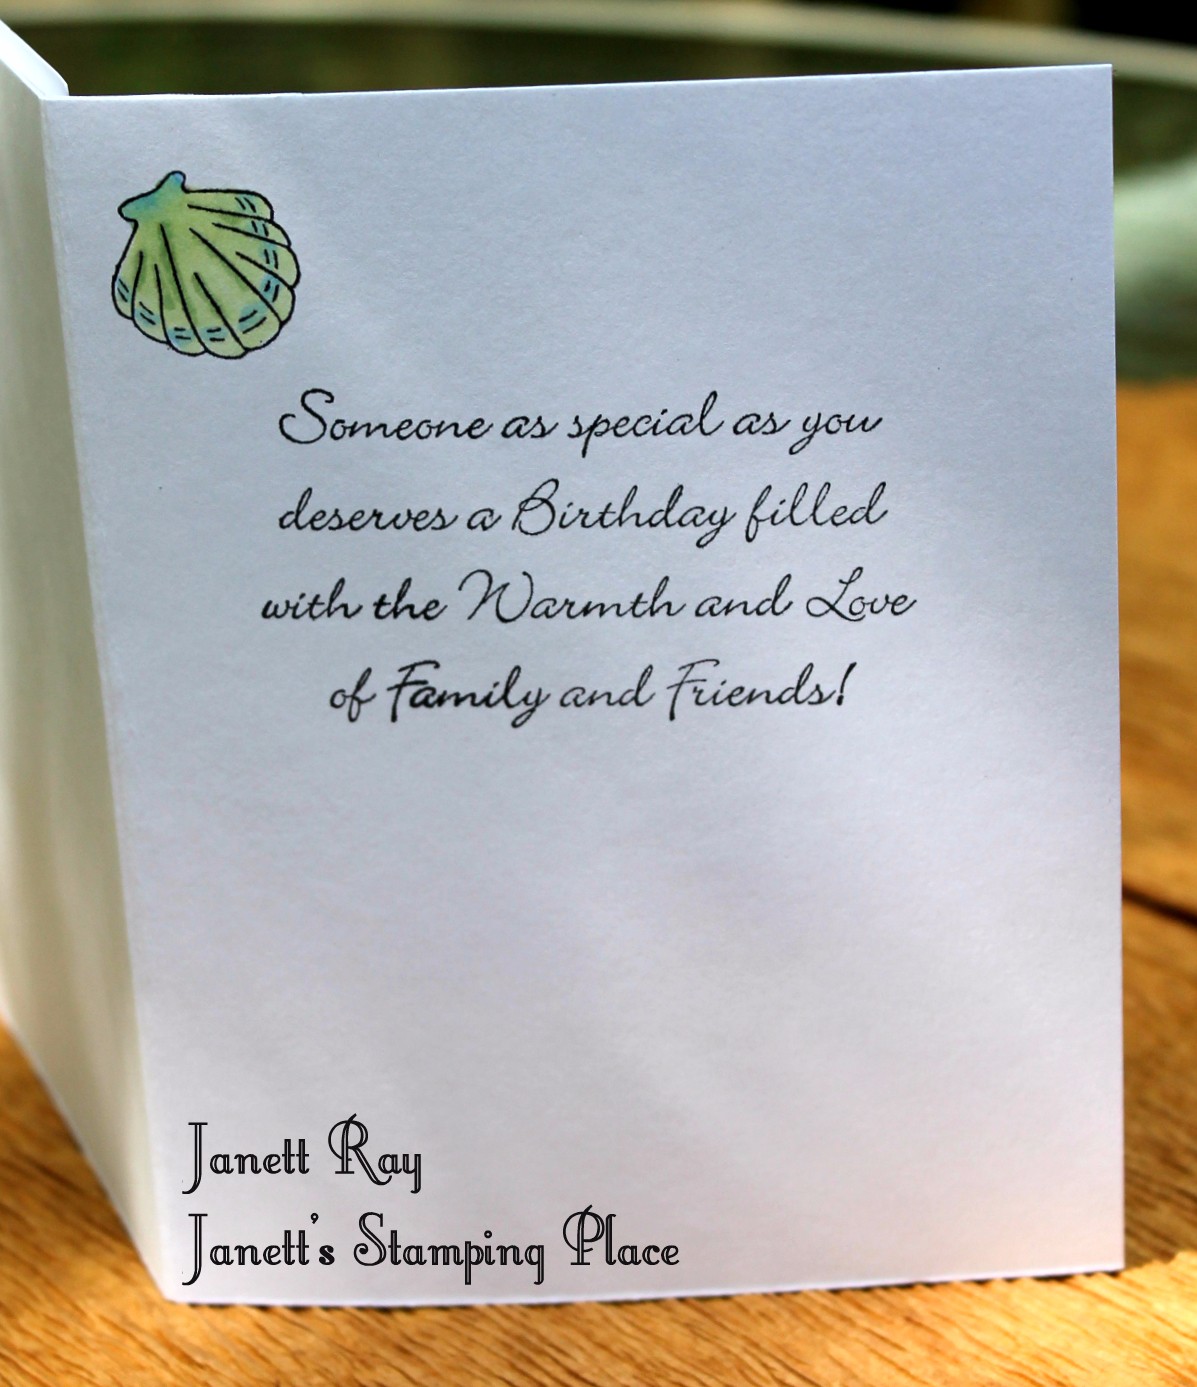 Someone as special as you
deserves a Birthday filled
with the Warmth and Love
of Family and Friends!
Janett Ray
Janett's Stamping Place